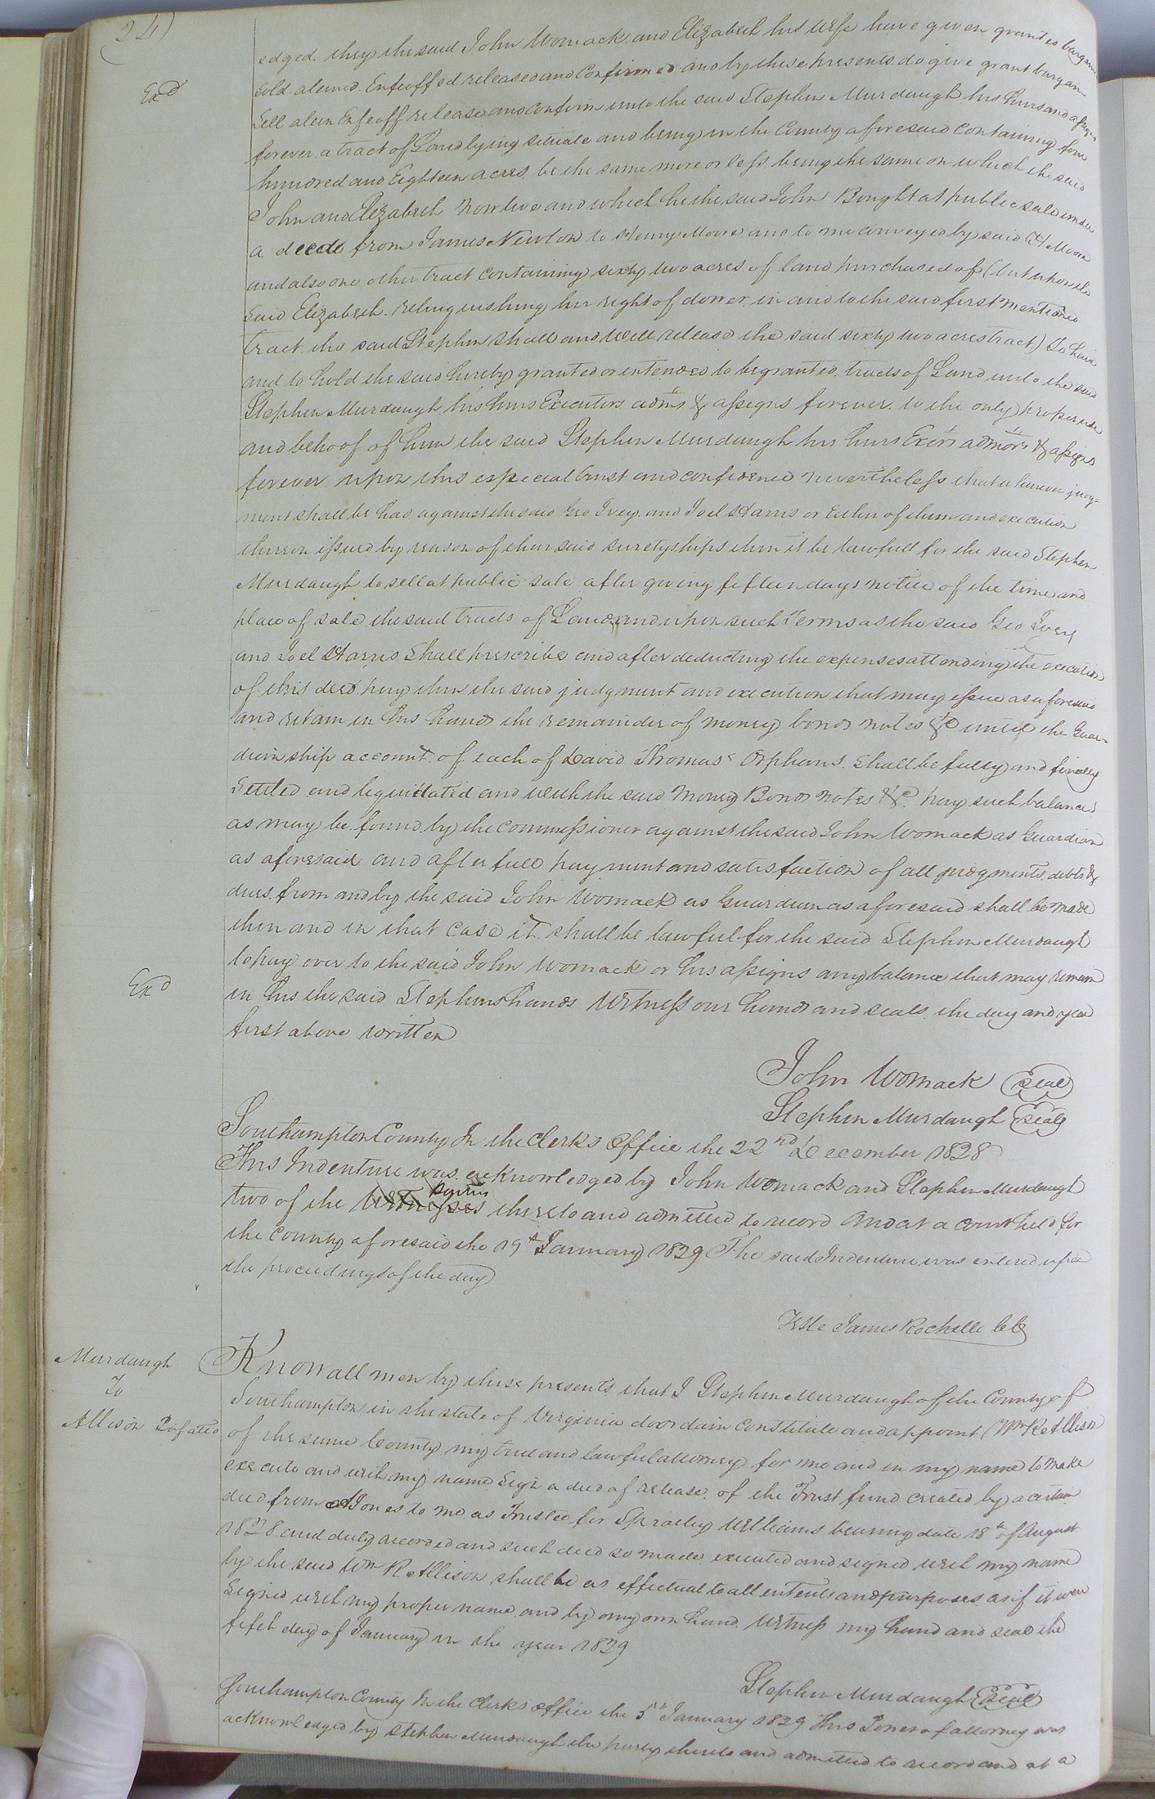 241
edged they the said John Womack and Elizabeth his wife have given granted bargain
Exd
sold aliened Enfeoffed released and confirmed and by these presents do give grant bargain
Sell alien Enfeoff release and confirm unto the said Stephen Murdaugh his heirs and assigns
forever a tract of Land lying situate and being in the County aforesaid containing four
hundred and Eighteen acres be the same more or less being the same on which the said
John and Elizabeth now live and which he the said John Bought at public sale under
a deed from James Newton to Henry Moore and to me conveyed by said H Moore
and also one other tract containing sixty two acres of land purchased of (but when the
said Elizabeth relinquishing her right of dower in and to the said first mentioned
tract the said Stephen shall and will release the said sixty two acres tract) To have
and to hold the said hereby granted or intended to be granted tracts of Land unto the said
Stephen Murdaugh his heirs Executors adms & assigns forever to the only proper use
and behoof of him the said Stephen Murdaugh his heirs Exors admors & assigns
forever upon this especial trust and confidence nevertheless that whenever judg-
ment shall be had against the said Geo Ivey and Joel Harris or Either of them and execution
thereon issued by reason of their said suretyships then it be lawfull for the said Stephen
Murdaugh to sell at public sale after giving fifteen days notice of the time and
place of sale the said tracts of Land and upon such Terms as the said Geo Ivey
and Joel Harris Shall prescribe and after deducting the expenses attending the execution
of this deed pay then the said judgment and execution that may issue as aforesaid
and retain in his hands the remainder of money bonds notes &c until the Guar-
dianship account of each of David Thomas' Orphans shall be fully and finally
Settled and liquidated and with the said Money Bonds notes &c pay such balances
as may be found by the commissioner against the said John Womack as Guardian
as aforesaid and after full payment and satisfaction of all judgments debts &
dues from and by the said John Womack as Guardian as aforesaid shall be made
then and in that case it shall be lawful for the said Stephen Murdaugh
to pay over to the said John Womack or his assigns any balance that may remain
Exd
in his the said Stephens hands Witness our hands and seals the day and year
first above written
John Womack (Seal)
Stephen Murdaugh (Seal)
Southampton County In the Clerks Office the 22nd December 1828
This Indenture was acknowledged by John Womack and Stephen Murdaugh
parties
two of the Witnesses thereto and admitted to record And at a court held for
the County aforesaid the 19th January 1829 The said Indenture was entered upon
the proceedings of the day
Teste James Rochelle clk
Murdaugh
To
Allison Pof atto
Know all men by these presents that I Stephen Murdaugh of the County of
Southampton in the state of Virginia do ordain constitute and appoint Wm R Allison
of the same County my true and lawful attorney for me and in my name to make
execute and with my name sign a deed of release of the Trust fund created by a certain
deed from A Jones to me as Trustee for Spratley Williams bearing date 18th of August
1828 and duly recorded and such deed so made executed and signed with my name
by the said Wm R Allison shall be as effectual to all intents and purposes as if it were
Signed with my proper name and by my own hand Witness my hand and seal the
fifth day of January in the year 1829
Stephen Murdaugh (Seal)
Southampton County In the Clerks office the 5th January 1829 This Power of attorney was
acknowledged by Stephen Murdaugh the party thereto and admitted to record and at a